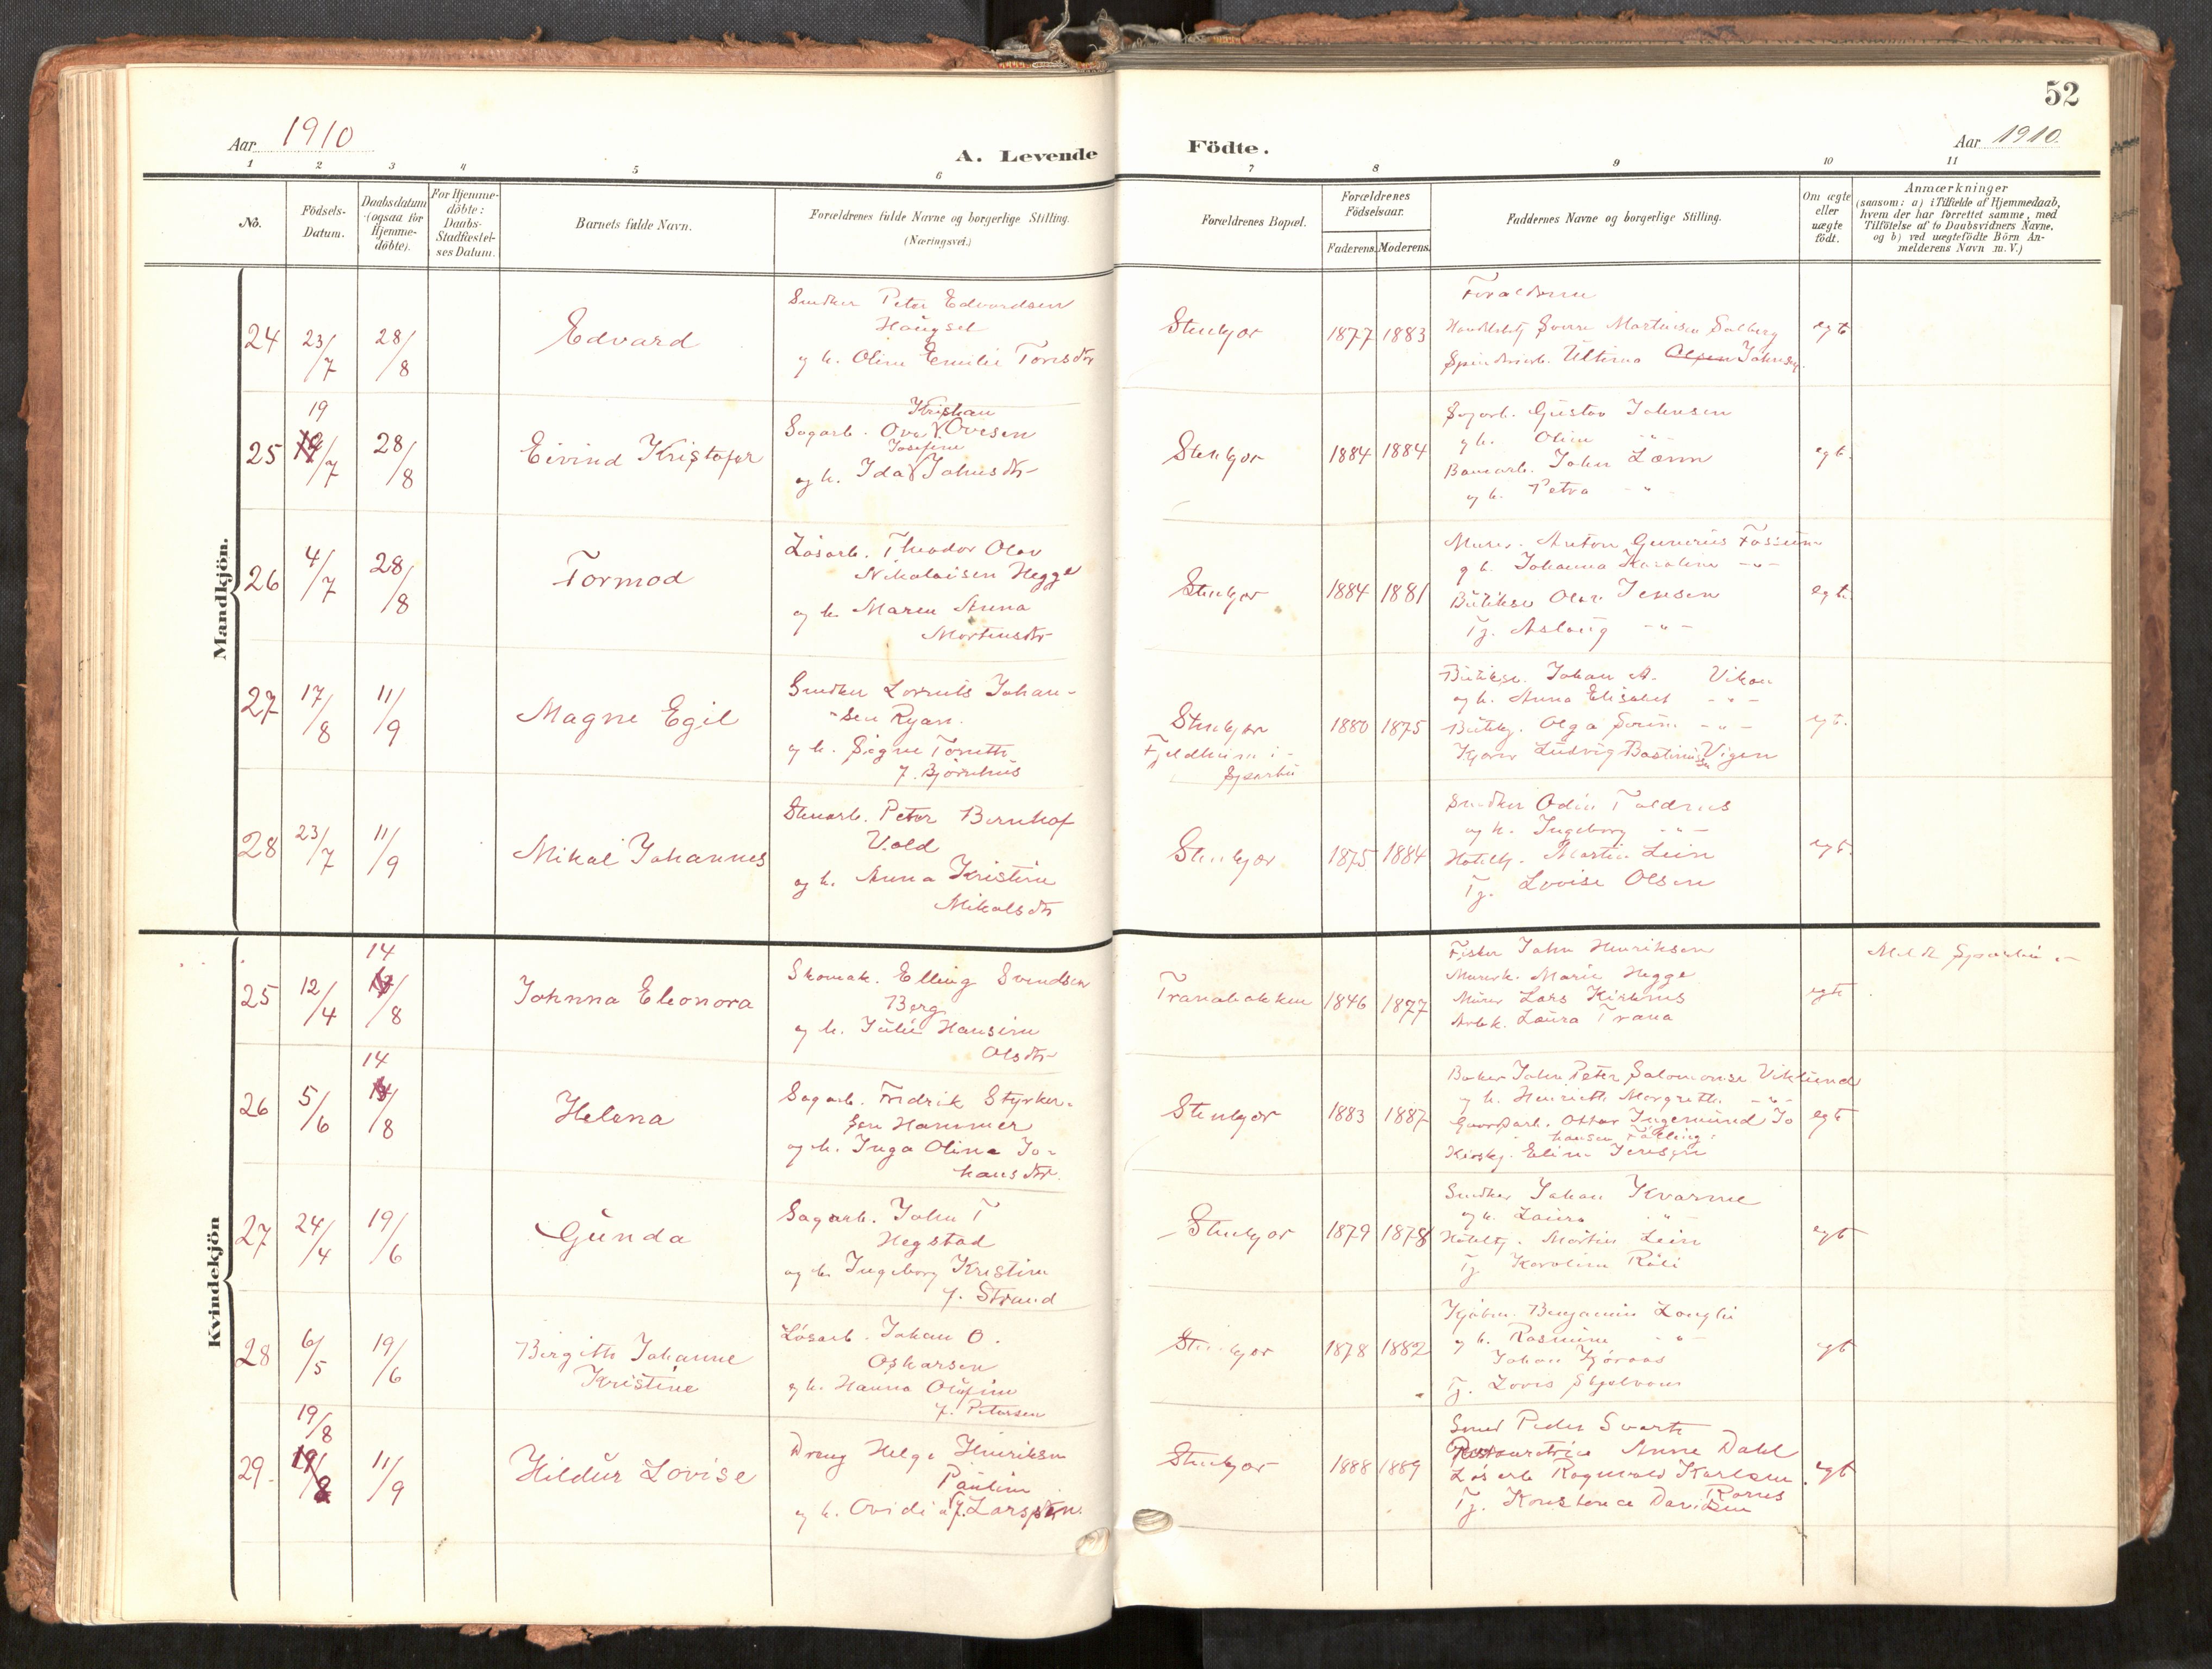 52
Aar 1910
A. Levende Födte.
Aar 1910.
1 2 3 4 5 6 7 8 9 10 11
No.
Födsels-
Datum.
Daabsdatum
(ogsaa for
Hjemme-
döbte).
For Hjemme-
döbte:
Daabs-
Stadfæstel-
ses Datum.
Barnets fulde Navn.
Forældrenes fulde Navne og borgerlige Stilling.
(Næringsvei.)
Forældrenes Bopæl.
Forældrenes
Födselsaar.
Faderens. Moderens.
Faddernes Navne og borgerlige Stilling.
Om ægte
eller
uægte
födt.
Anmærkninger
(saasom: a) i Tilfælde af Hjemmedaab,
hvem der har forrettet samme, med
Tilföielse af to Daabsvidners Navne,
og b) ved uægtefödte Börn An-
melderens Navn m. V.)
Mandkjön.
24 23/7 28/8 Edvard
Snedker Peter Edvardsen
Haugset
og h. Oline Emilie Torisdtr
Stenkjær 1877 1883
Forældrene
Sverre Martinsen Salberg
Ultima Olsen Johnsen
egt
25 19/7 28/8 Eivind Kristofer
Kristian
Sagarb. Ove Ovesen
Josefine
og h. Ida Johnsdtr
Stenkjær 1884 1884
Sagarb. Gustav Johnsen
og h. Oline -"-
Banearb. John Lænn
og h. Petra -"-
egt.
26 4/7 28/8 Tormod
Lösarb. Theodor Olav
Nikolaisen Hegge
og h. Maren Anna
Mortensdtr
Stenkjær 1884 1881
Murer. Anton Gunerius Fossum
og h. Johanna Karoline -"-
Olav Jensen
Tj. Aslaug -"-
egt.
27 17/8 11/9 Magne Egil
Snedker Lorents Johan-
sen Ryan.
og h. Signe Toreth
f. Björnhus
Stenkjær
Fjeldheim i
Sparbu
1880 1875
Johan A. Vikan
og h. Anna Elisabet -"-
Olga -"-
Ludvig Bastiansen Vigen
egt.
28 23/7 11/9 Mikal Johannes
Stenarb. Peter Bernhof
Vold
og h. Anna Kristine
Mikalsdtr
Stenkjær 1875 1884
Snedker Odin Foldnes
og h. Ingeborg -"-
Martin Lein
Tj. Lovise Olsen
egt.
Kvindekjön
25 12/4 14/8 Johnna Eleonora
Skomak. Elling Svendsen
Berg
og h. Julie Hansine
Olsdtr
Tranabakken 1846 1877
Fisker John Henriksen
Murerk. Marie Hegge
Murer Lars Kirknes
Arbk. Laura Trana
egt
26 5/6 14/8 Helena
Sagarb. Fredrik Styrker-
sen Hammer
og h. Inga Olina Jo-
hansdtr.
Stenkjær 1883 1887
Baker John Peter Salomonse Viklund
og h. Henriette Margrethe -"-
Ottar Ingemund Jo
hansen
Eline Jensen
egt
27 24/4 19/6 Gunda
Sagarb. John T
Hegstad
og h. Ingeborg Kristine
f. Strand
Stenkjær 1879 1878
Snedker Johan Kvarme
og h. Laura -"-
Martin Lein
Tj. Karoline Röli
egt
28 6/5 19/6 Birgith Johanne
Kristine
Lösarb. Johan O.
Oskarsen
og h. Hanna Olufine
f. Petersen
Stenkjær 1878 1882
Kjöbm. Benjamin Langli
og h. Rasmine -"-
Johan
Tj. Lovis
egt
29. 19/8 11/9 Hildur Lovise
Dreng Helge Henriksen
Pauline
og h. Ovidia f. Larssen.
Stenkjær 1888 1889
Smed Peder Svarte
Restauratrice Anne Dahl
Lösarb Ragnvald Karlsen
Tj. Konstance Davidsen
egt